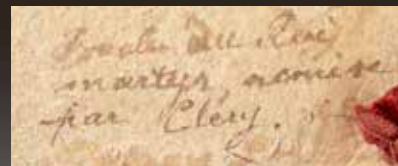 du Roi
martyr, remise
par Cléry.